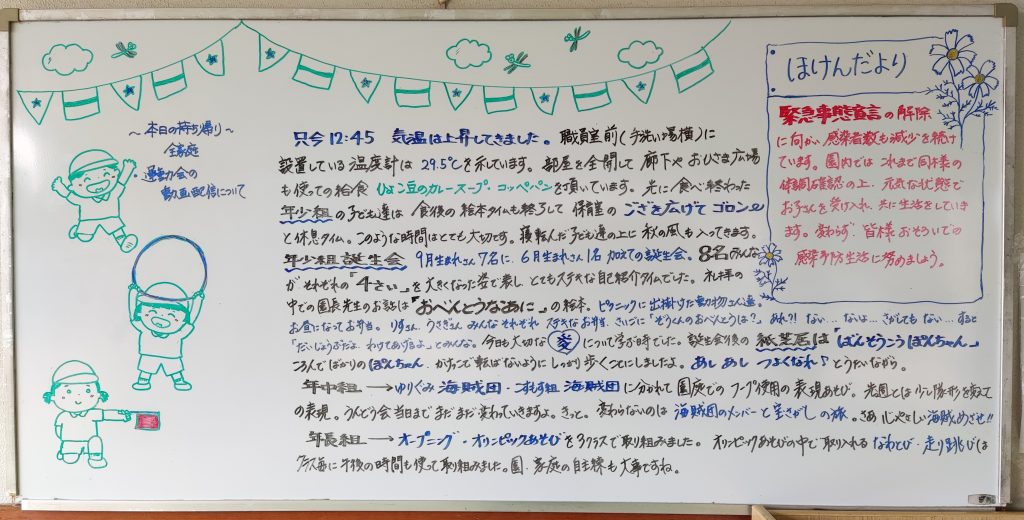 ～本日の持ち帰り～
全家庭
・運動会の
動画配信について
只今12:45 気温は上昇してきました。職員室前(手洗い場横)に
設置している温度計は 29.5℃を示しています。部屋を全開して 廊下や おひさま広場
も使っての給食 ひよこ豆のカレースープ、コッペパンを頂いています。先に食べ終わった
年少組の子ども達は 食後の絵本タイムも終了して 保育室の ござを広げて ゴロン
と休息タイム。このような時間はとても大切です。寝転んだ子ども達の上に 秋の風も入ってきます。
年少組誕生会 9月生まれさん7名に、6月生まれさん1名 加えての誕生会。8名のみんな
が それぞれの「4さい」を 大きくなった姿で表し、とてもステキな自己紹介タイムでした。礼拝の
中での園長先生のお話は「おべんとうなあに」の絵本。ピクニックに出掛けた動物さん達。
お昼になってお弁当。りすさん、うさぎさん みんな それぞれ ステキなお弁当、さいごに「ぞうくんのおべんとうは?」あれ?! ない…ないよ…さがしても ない… すると
「だいじょうぶだよ、わけてあげるよ」とのみんな。今日も大切な 愛 について学ぶ時でした。誕生会後の 紙芝居は「ばんそうこうぽんちゃん」
ころんでばかりの ぽんちゃん、がすっころんで転ばないように しっかり歩くことにしましたよ。あし あし つよくなれ♪ とうたいながら。
年中組 → ゆりぐみ 海賊団・こすもす組 海賊団 に分かれて 園庭での フープ使用の表現あそび。先週とは 少し隊形を変えて
の表現。うんどう会当日まで まだまだ変わっていきますよ。きっと。変わらないのは 海賊団のメンバーと宝さがしの旅。さあ 心やさしい海賊めざせ!!
年長組 → オープニング・オリンピックあそびを 3クラスで取り組みました。オリンピックあそびの中で取り入れる なわとび・走り跳びは
クラス毎に午後の時間も使って取り組みました。園・家庭の自主練も大事ですね。
ほけんだより
緊急事態宣言の解除
に向かい 感染者数も減少を続け
ています。園内では これまで同様の
体調確認の上、元気な状態で
お子さんを受け入れ、共に生活をしていき
ます。変わらず 皆様おそろいでの
感染予防生活に努めましょう。